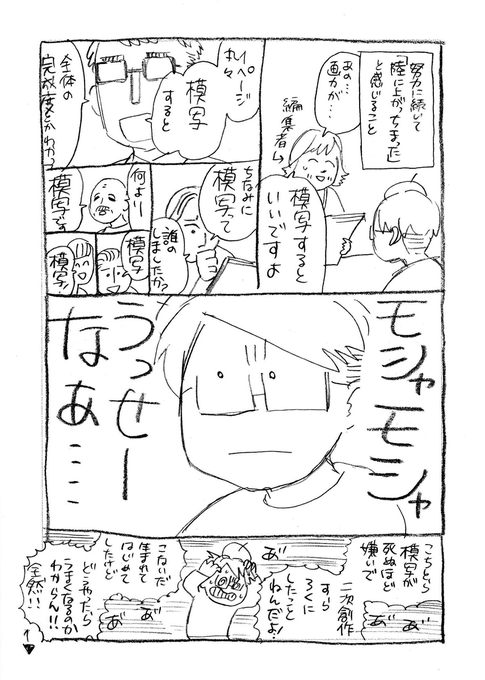 努力に続いて
「陸に上がっちまった」
と感じること
あの…
画力が…
編集者→
模写すると
いいですよ
1ページ
丸々
模写
すると
全体の
完成度とかわかっ
ちなみに
模写って
誰の
しましたか?
何より
模写です
模写
模写!
モシャモシャ
うっせー
なぁ‥‥
こちとら
模写が
死ぬほど
嫌いで
あ゛ あ゛
二次創作
すら
ろくに
したこと
ねんだよ!
あ゛
こないだ
生まれて
はじめて
したけど
あ゛
あ゛
どうやったら
うまくなるのか
わからん!!
全然!!
1